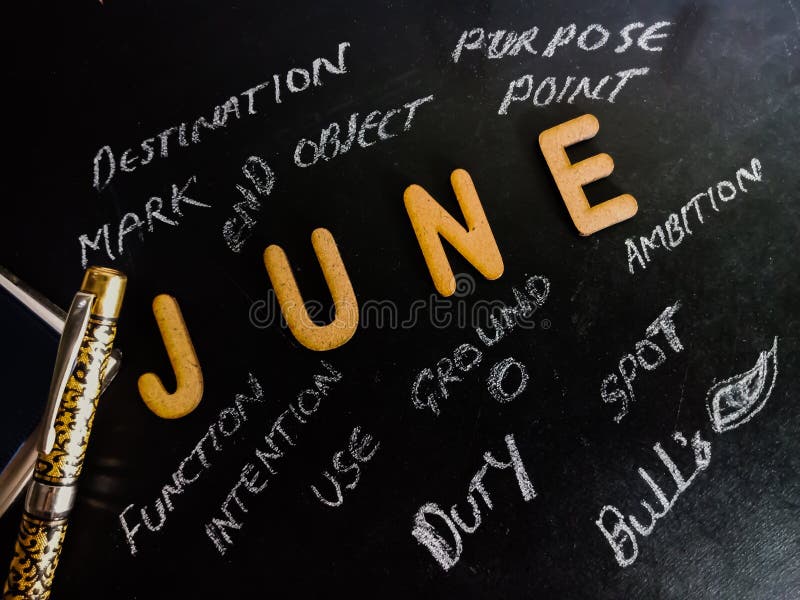 PURPOSE
DESTINATION
POINT
OBJECT
END
MARK
JUNE
AMBITION
GROUND
O
SPOT
FUNCTION
INTENTION
USE
DUTY
Bull's
dreamstime